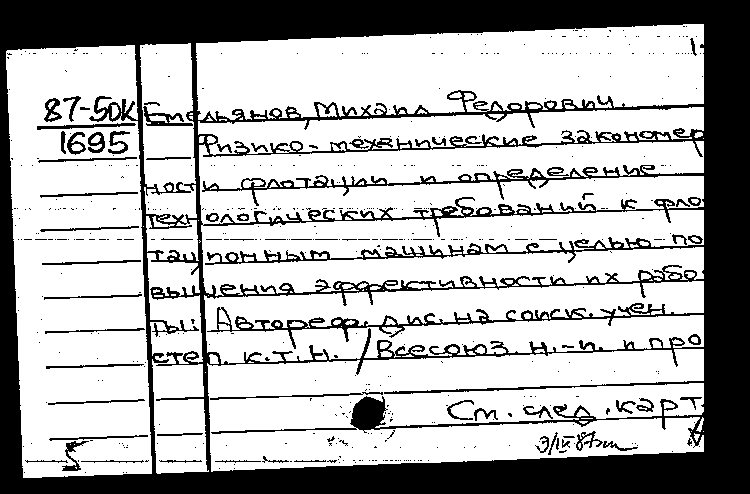 1-
87-5ДК Емельянов, Михаил Федорович.
1695 Физико-механические закономер
ности флотации и определение
технологических требований к фло
тационным машинам с целью по
вышения эффективности их рабо
ты: Автореф. дис. на соиск. учен.
степ. к.т.н. / Всесоюз. н.-и. и про
См. след. карт.
5